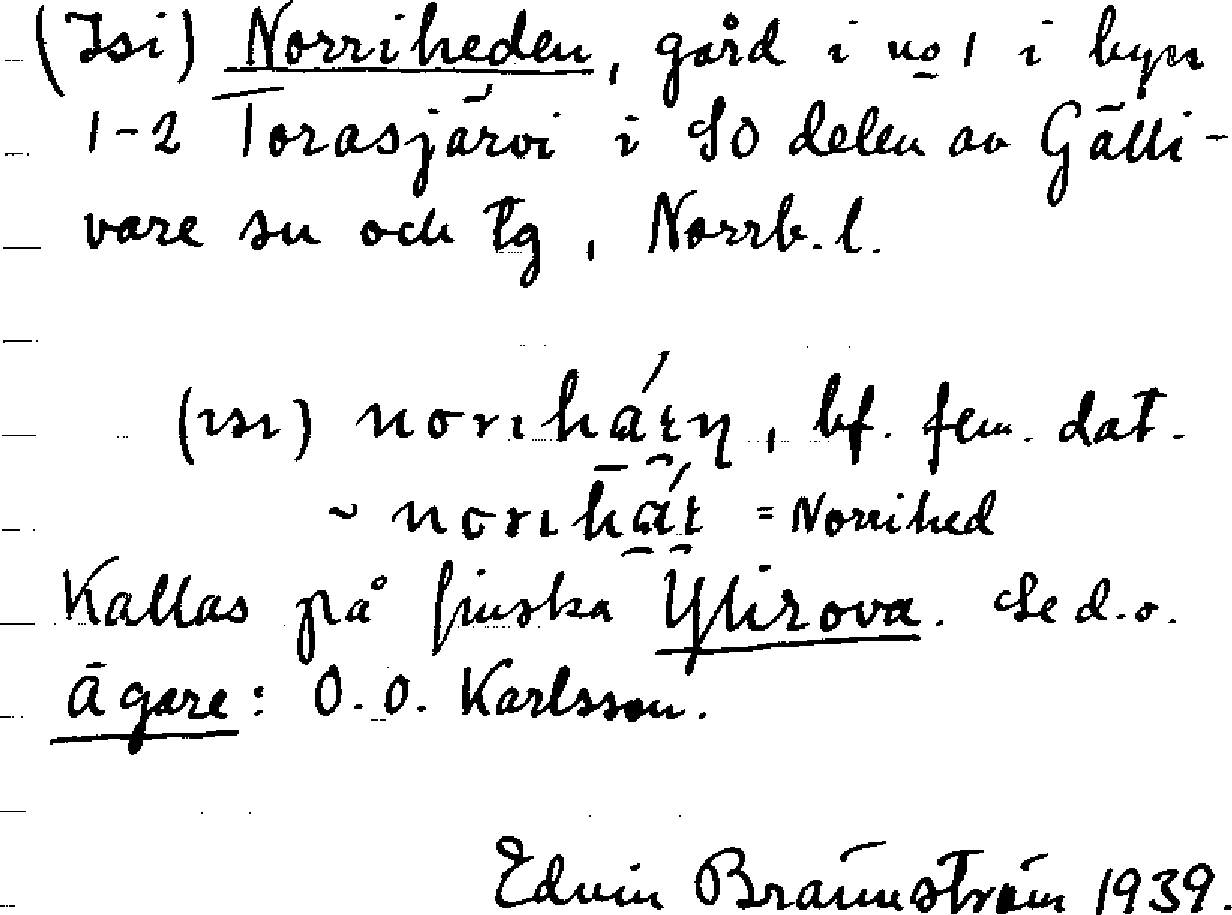 (Isi) Norriheden, gård i no 1 i byn
1-2 Torasjärvi i SO delen av Gälli-
vare sn och tg, Norrb. l.
(ısı) norıhä́ᶉn, bf. fem. dat.
~ norıhä́t = Norrihed
Kallas på finska Ylirova. Se d.o.
Ägare: O. O. Karlsson.
Edvin Brännström 1939.